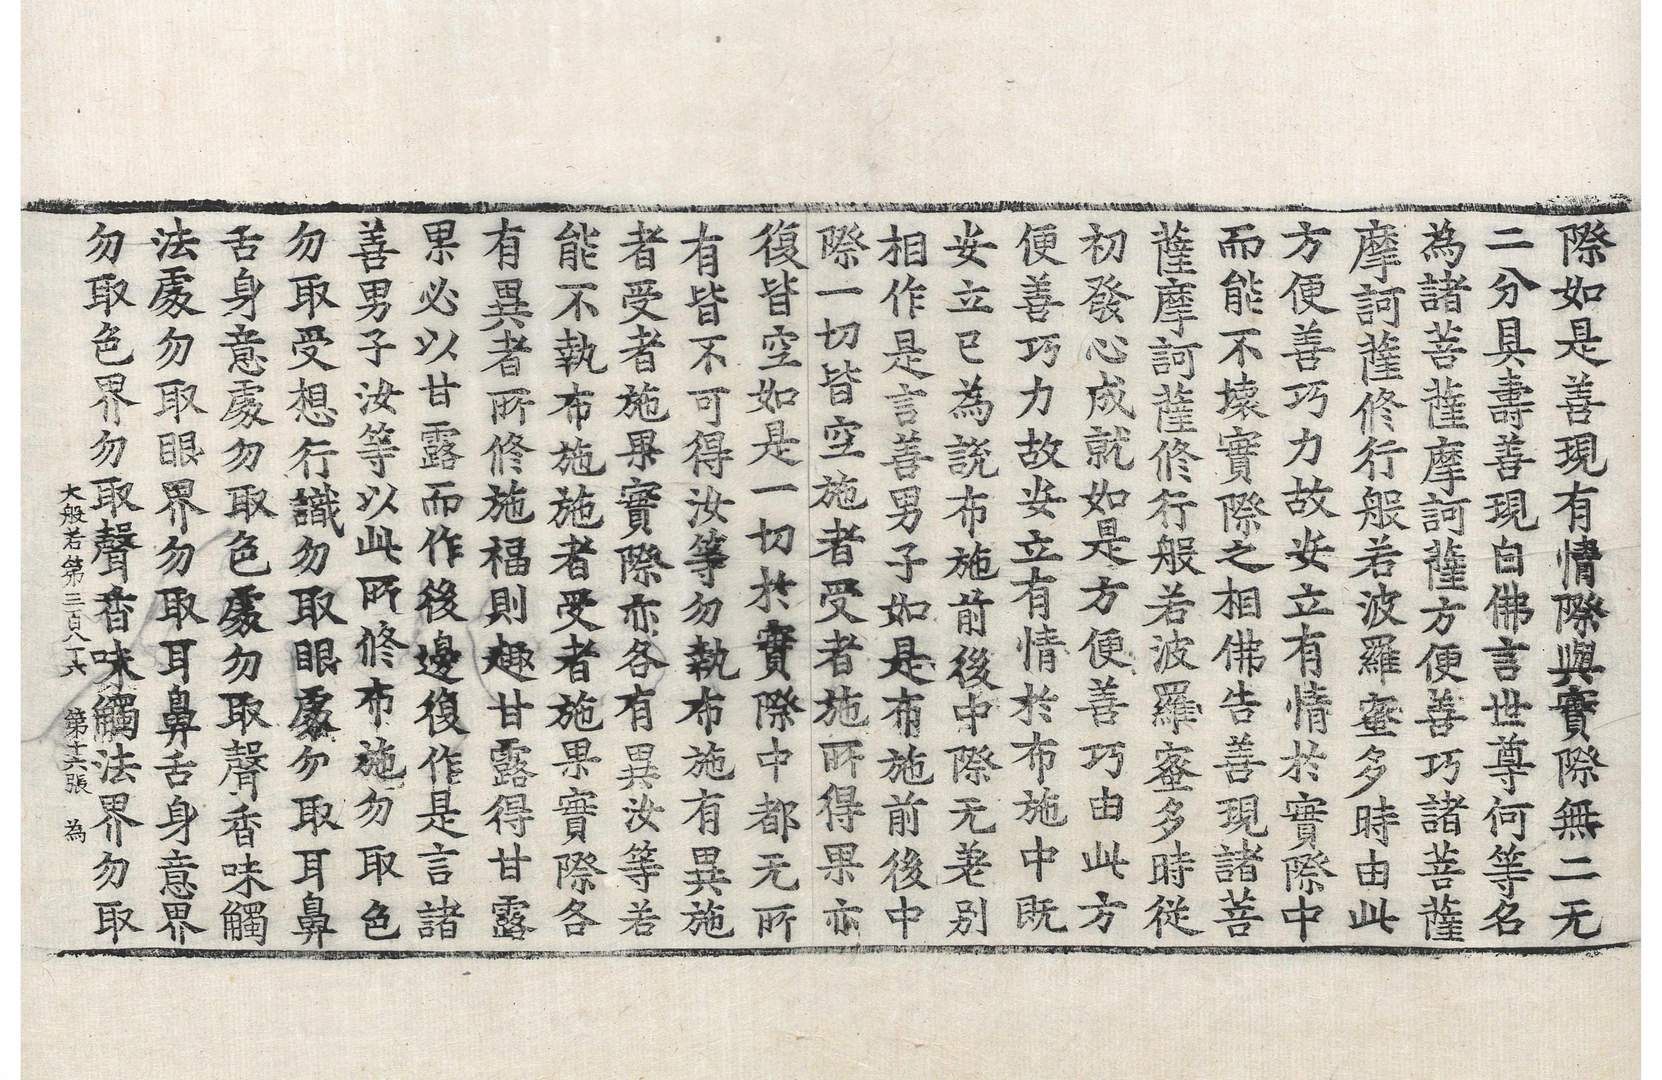 際如是善現有情際與實際無二无
二分具壽善現白佛言世尊何等名
為諸菩薩摩訶薩方便善巧諸菩薩
摩訶薩修行般若波羅蜜多時由此
方便善巧力故安立有情於實際中
而能不壞實際之相佛告善現諸菩
薩摩訶薩修行般若波羅蜜多時從
初發心成就如是方便善巧由此方
便善巧力故安立有情於布施中既
安立已為說布施前後中際无差别
相作是言善男子如是布施前後中
際一切皆空施者受者施所得果亦
復皆空如是一切於實際中都无所
有皆不可得汝等勿執布施有異施
者受者施果實際亦各有異汝等若
能不執布施施者受者施果實際各
有異者所修施福則趣甘露得甘露
果必以甘露而作後邊復作是言諸
善男子汝等以此所修布施勿取色
勿取受想行識勿取眼處勿取耳鼻
舌身意處勿取色處勿取聲香味觸
法處勿取眼界勿取耳鼻舌身意界
勿取色界勿取聲香味觸法界勿取
大般若第三百八十六 第十六張 為